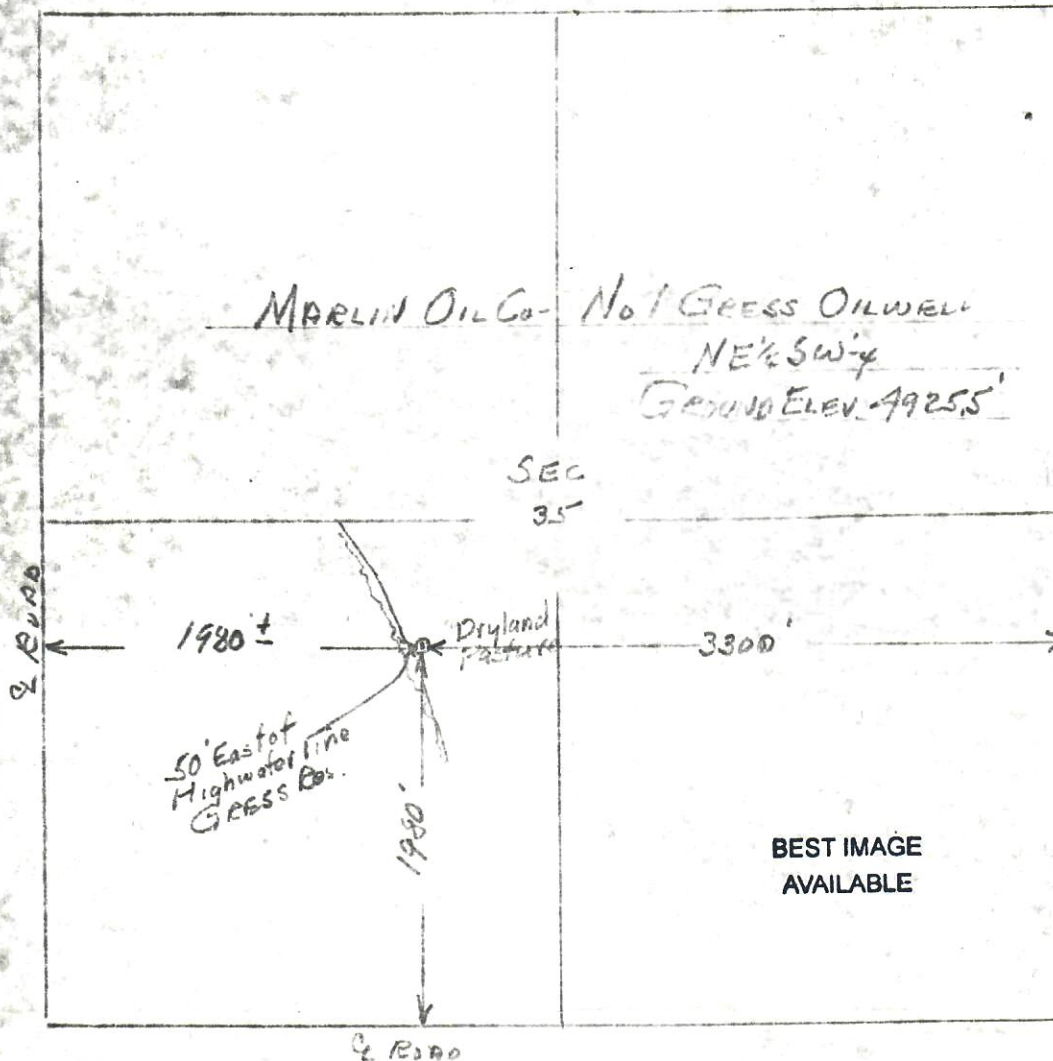 MARLIN OIL Co- No 1 GRESS OILWELL
NE¼ SW¼
GROUND ELEV. 4925.5'
SEC
35
℄ ROAD
1980'±
Dryland
Pasture
3300'
50' East of
Highwater line
GRESS Res.
1980'
BEST IMAGE
AVAILABLE
℄ ROAD